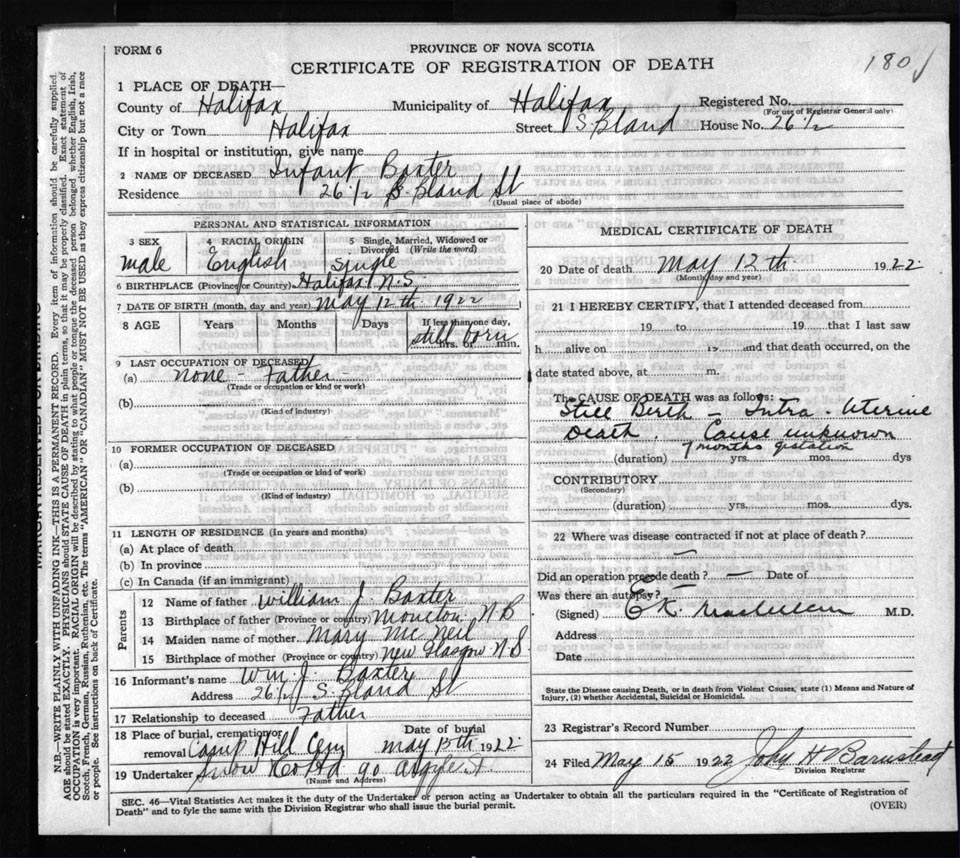 FORM 6
PROVINCE OF NOVA SCOTIA
CERTIFICATE OF REGISTRATION OF DEATH
180
1 PLACE OF DEATH—
County of Halifax Municipality of Halifax Registered No.
(For use of Registrar General only)
City or Town Halifax Street S. Bland House No. 26 1/2
If in hospital or institution, give name
2 NAME OF DECEASED Infant Baxter
Residence 26 1/2 S. Bland St
(Usual place of abode)
PERSONAL AND STATISTICAL INFORMATION
3 SEX 4 RACIAL ORIGIN 5 Single, Married, Widowed or Divorced (Write the word)
Male English Single
6 BIRTHPLACE (Province or Country) Halifax N.S.
7 DATE OF BIRTH (month, day and year) May 12th 1922
8 AGE Years Months Days If less than one day,
still born hrs. or min.
9 LAST OCCUPATION OF DECEASED
(a) None - Father -
(Trade or occupation or kind of work)
(b)
(Kind of industry)
10 FORMER OCCUPATION OF DECEASED
(a)
(Trade or occupation or kind of work)
(b)
(Kind of industry)
11 LENGTH OF RESIDENCE (In years and months)
(a) At place of death
(b) In province
(c) In Canada (if an immigrant)
Parents
12 Name of father William J Baxter
13 Birthplace of father (Province or country) Moncton N B
14 Maiden name of mother Mary McNeil
15 Birthplace of mother (Province or country) New Glasgow N.S.
16 Informant's name Wm. J. Baxter
Address 26 1/2 S. Bland St
17 Relationship to deceased Father
18 Place of burial, cremation or Date of burial
removal Camp Hill Cem May 15th 1922
19 Undertaker Snow & Co Ltd 90 Argyle St
(Name and Address)
MEDICAL CERTIFICATE OF DEATH
20 Date of death May 12th 1922
(Month, day and year)
21 I HEREBY CERTIFY, that I attended deceased from
19 to 19 that I last saw
h alive on 19 and that death occurred, on the
date stated above, at m.
The CAUSE OF DEATH was as follows:
Still Birth - Intra-Uterine
Death. Cause unknown
7 months gestation
(duration) yrs. mos. dys
CONTRIBUTORY
(Secondary)
(duration) yrs. mos. dys.
22 Where was disease contracted if not at place of death?
—
Did an operation precede death? — Date of
Was there an autopsy?
(Signed) E K M.D.
Address
Date
State the Disease causing Death, or in death from Violent Causes, state (1) Means and Nature of
Injury, (2) whether Accidental, Suicidal or Homicidal.
23 Registrar's Record Number
24 Filed May 15 1922 John H Barnstead
Division Registrar
SEC. 46—Vital Statistics Act makes it the duty of the Undertaker or person acting as Undertaker to obtain all the particulars required in the "Certificate of Registration of
Death" and to fyle the same with the Division Registrar who shall issue the burial permit.
(OVER)
MARGIN RESERVED FOR BINDING
N.B.—WRITE PLAINLY WITH UNFADING INK—THIS IS A PERMANENT RECORD. Every item of information should be carefully supplied.
AGE should be stated EXACTLY. PHYSICIANS should STATE CAUSE OF DEATH in plain terms, so that it may be properly classified. Exact statement of
OCCUPATION is very important. RACIAL ORIGIN will be described by stating to what people or tongue the deceased person belonged whether English, Irish,
Scotch, French, German, Russian, Ruthenian, etc. The terms "AMERICAN" OR "CANADIAN" MUST NOT BE USED as they express citizenship but not a race
or people. See instructions on back of Certificate.